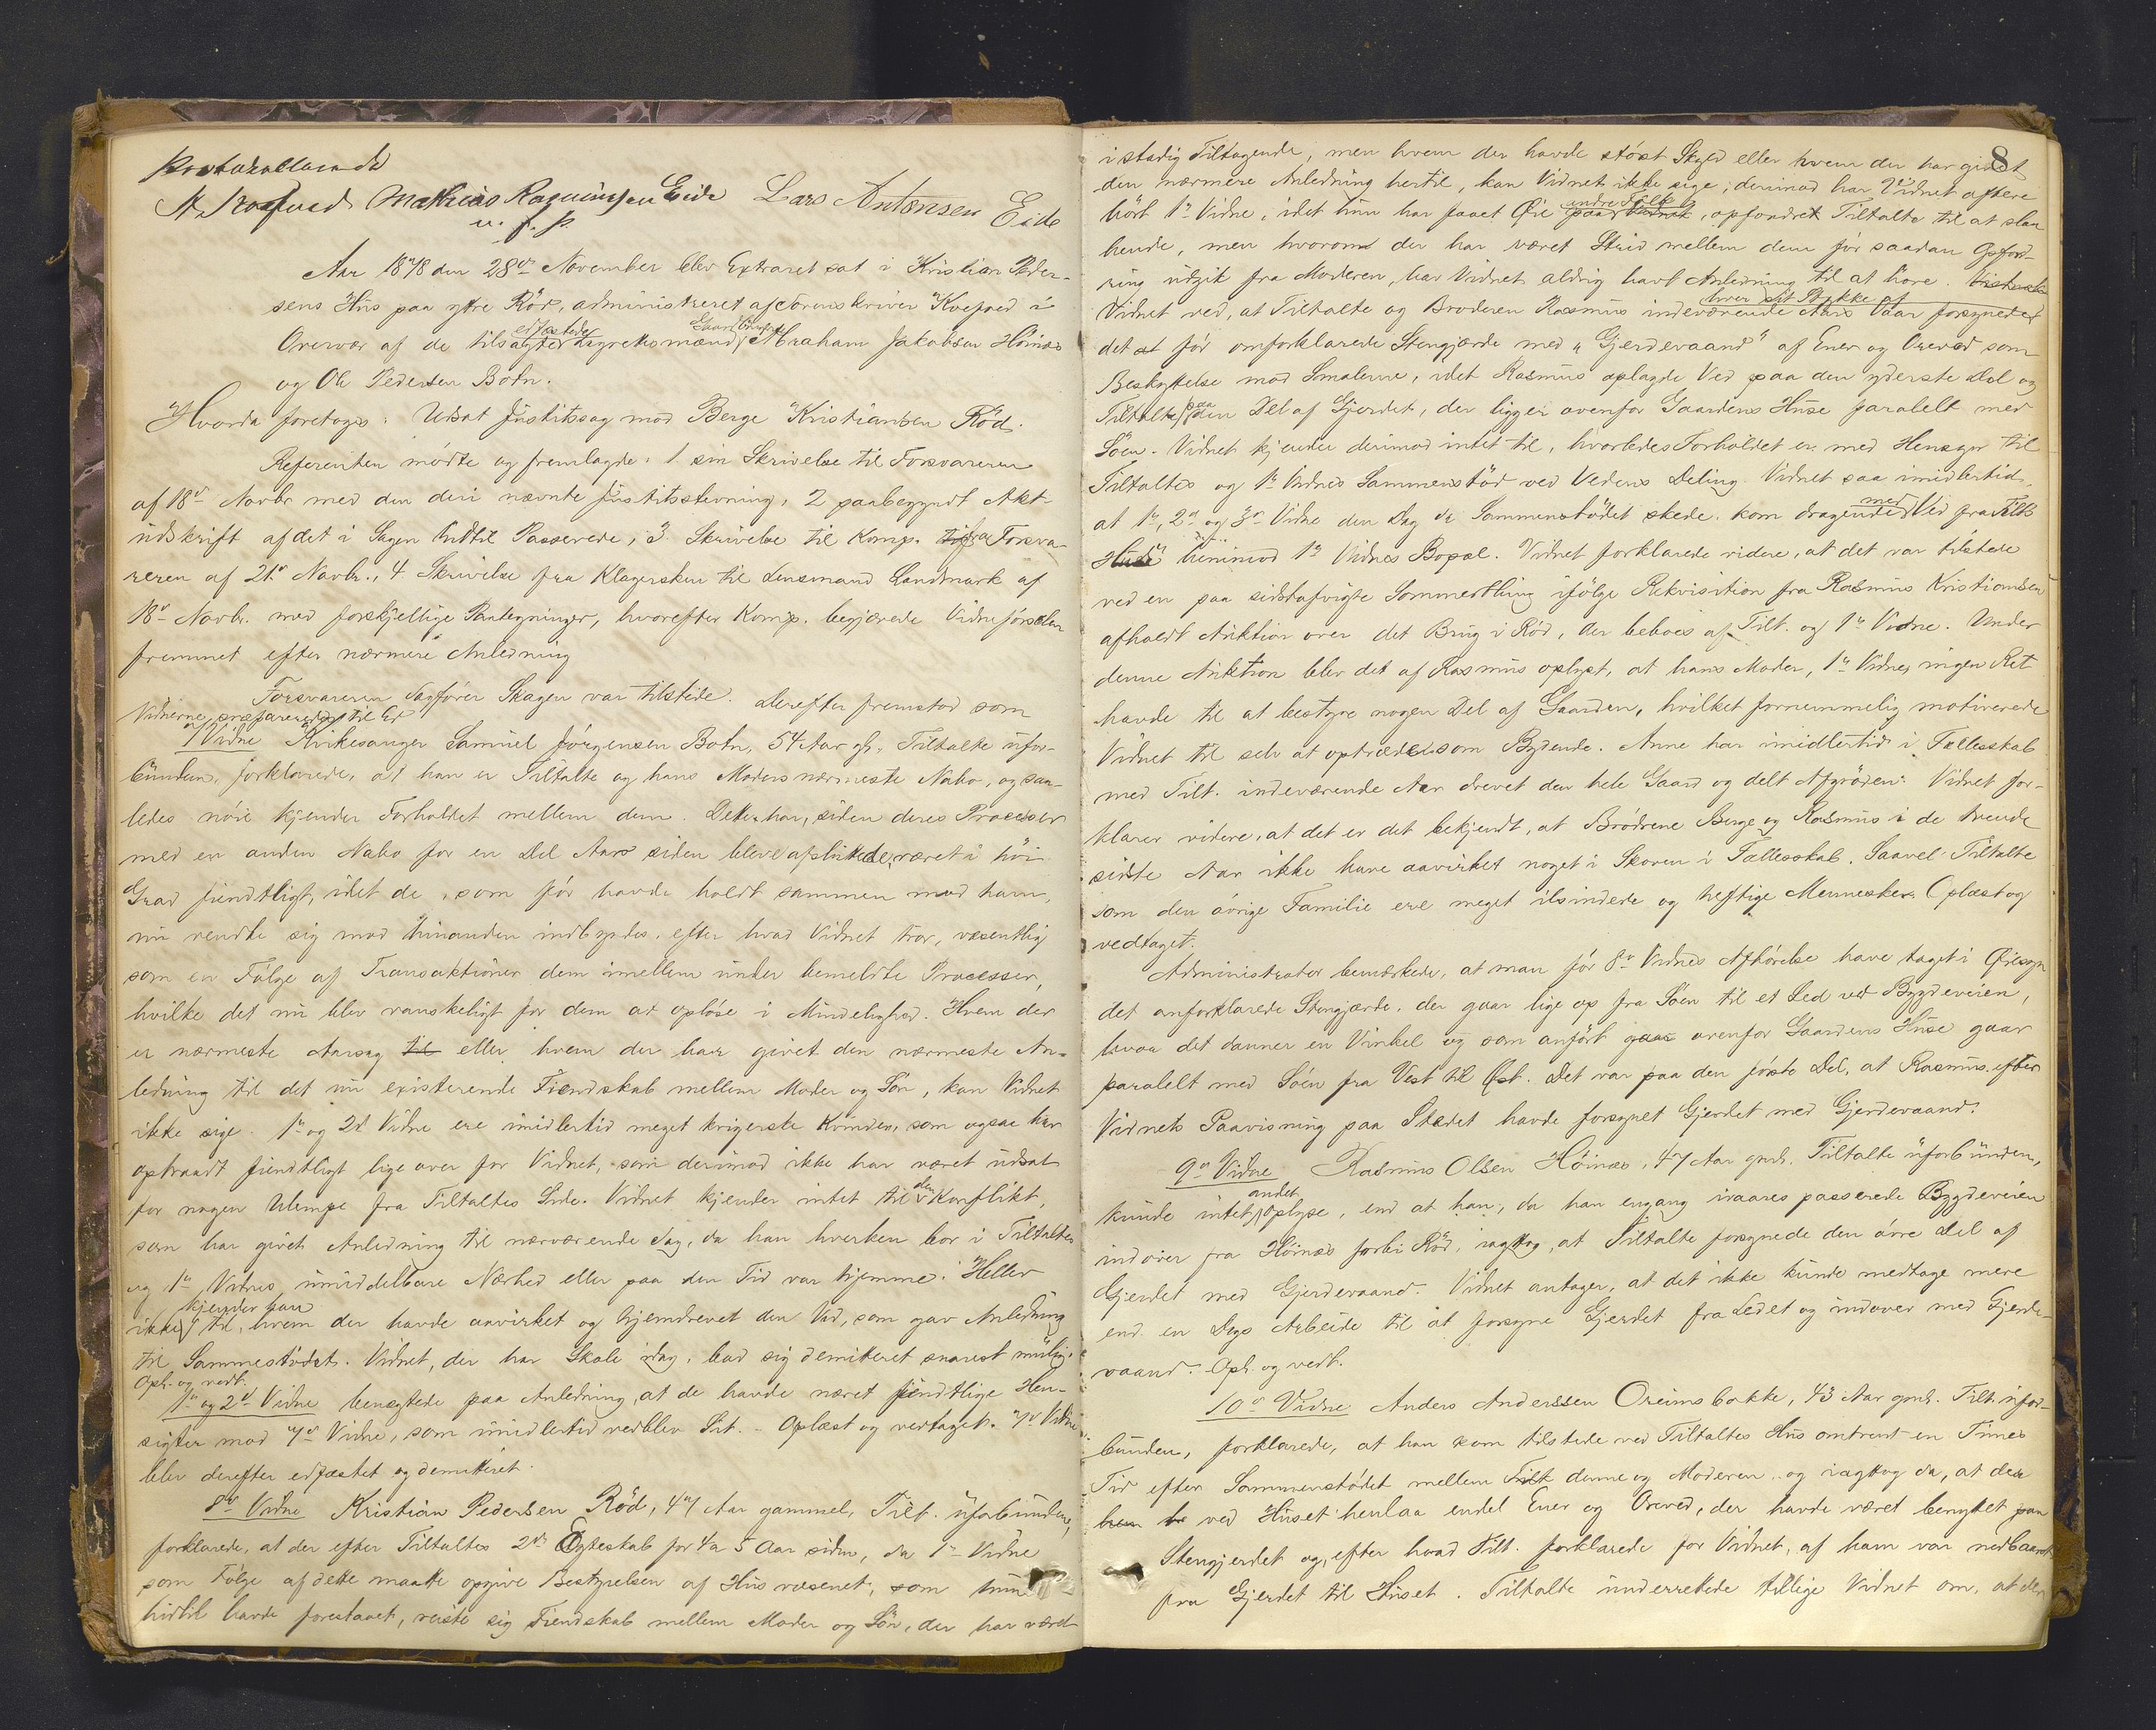 Protokollerede
Mathias Ragnvinsen Eide Lars Antonsen
u. f. p. Eide
Aar 1878 den 28de November blev Extraret sat i Kristian Peder-
sens Hus paa ytre Röd, administreret af Sorenskriver Koefoed i
Overvær af de tilsagte edfæstede Lagrettesmænd, Gaardbrugere Abraham Jakobsen Höinæs
og Ole Pedersen Botn.
Hvorda foretoges: Udsat Justitssag mod Berge Kristiansen Röd.
Referenten mödte og fremlagde: 1 sin Skrivelse til Forsvareren
af 18de Novbr med den deri nævnte Justitsstevning, 2 paabegyndt Akt-
udskrift af det i Sagen hidtil Passerede, 3 Skrivelse til Komp. fra Forsva-
reren af 21de Novbr., 4. Skrivelse fra Klagersken til Lensmand Landmark af
18de Novbr. med forskjellige Paategninger, hvorefter Komp. begjærede Vidneförselen
fremmet efter nærmere Anledning
Forsvareren Sagförer Skagen var tilstede. Derefter fremstod som
Vidnerne præpareredes til Ed
7de Vidne Kirkesanger Samuel Jörgensen Botn, 54 Aar gl., Tiltalte ufor-
bunden, forklarede, at han er Tiltalte og hans Moders nærmeste Nabo, og saa-
ledes nöie kjender Forholdet mellem dem. Dette har, siden deres Processer
med en anden Nabo for en Del Aar siden bleve afsluttede, været i höi
Grad fiendtligt, idet de, som för havde holdt sammen mod ham,
nu vendte sig mod hinanden indbyrdes, efter hvad Vidnet tror, væsentlig
som en Fölge af Transaktioner dem imellem under bemeldte Processer,
hvilke det nu blev vanskeligt for dem at oplöse i Mindelighed. Hvem der
er nærmeste Aarsag til eller hvem der har givet den nærmeste An-
ledning til det nu existerende Fiendskab mellem Moder og Sön, kan Vidnet
ikke sige. 1ste og 2det Vidne ere imidlertid meget krigerske Kvinder, som ogsaa har
optraadt fiendtligt lige over for Vidnet, som derimod ikke har været udsat
for nogen Ulempe fra Tiltaltes Side. Vidnet kjender intet til den Konflikt,
som har givet Anledning til nærværende Sag, da han hverken bor i Tiltaltes
og 1ste Vidnes umiddelbare Nærhed eller paa den Tid var hjemme. Heller
ikke kjender han til, hvem der havde aavirket og hjemdrevet den Ved, som gav Anledning
til Sammenstödet. Vidnet, der har Skole idag, bad sig demitteret snarest mulig.
Opl. og vedt.
1ste og 2det Vidne benegtede paa Anledning, at de havde næret fiendtlige Hen-
sigter mod 7de Vidne, som imidlertid vedblev Sit. - Oplæst og vedtaget. 7de Vidne
blev derefter edfæstet og demitteret.
8de Vidne Kristian Pedersen Röd, 47 Aar gammel, Tilt. uforbunden,
forklarede, at der efter Tiltaltes 2det Egteskab for 4 a 5 Aar siden, da 1ste Vidne
som Fölge af dette maatte opgive Bestyrelsen af Husvæsenet, som hun
hidtil havde forestaaet, reiste sig Fiendskab mellem Moder og Sön, der har været
8
i stadig Tiltagende, men hvem der havde störst Skyld eller hvem der har givet
den nærmere Anledning hertil, kan Vidnet ikke sige; derimod har Vidnet oftere
hört 1ste Vidne, idet hun har faaet Öie paa andre Folk, opfordret Tiltalte til at slaa
hende, men hvorom der har været Strid mellem dem för saadan Opford-
ring udgik fra Moderen, har Vidnet aldrig havt Anledning til at höre.
Vidnet ved, at Tiltalte og Broderen Rasmus indeværende Aars Vaar forsynede hver sit Stykke af
det för omforklarede Stengjærde med "Gjerdevaand" af Ener og Oreved som
Beskyttelse mod Smalerne, idet Rasmus oplagde Ved paa den yderste Del og
Tiltalte paa den Del af Gjerdet, der ligger ovenfor Gaardens Huse paralelt med
Söen. Vidnet kjender derimod intet til, hvorledes Forholdet er med Hensyn til
Tiltaltes og 1ste Vidnes Sammenstöd ved Vedens Deling. Vidnet saa imidlertid,
at 1ste, 2det og 3die Vidne den Dag da Sammenstödet skede, kom dragende med Ved fra Tilt.
Huse henimod 1ste Vidnes Bopæl. Vidnet forklarede videre, at det var tilstede
ved en paa sidstafvigte Sommerthing ifölge Rekvisition fra Rasmus Kristiansen
afholdt Auktion over det Brug i Röd, der beboes af Tilt. og 1ste Vidne. Under
denne Auktion blev det af Rasmus oplyst, at hans Moder, 1ste Vidne, ingen Ret
havde til at bestyre nogen Del af Gaarden, hvilket fornemmelig motiverede
Vidnet til selv at optræde som Bydende. Anne har imidlertid i Fællesskab
med Tilt. indeværende Aar drevet den hele Gaard og delt Afgröden. Vidnet for-
klarer videre, at det er det bekjendt, at Brödrene Berge og Rasmus i de tvende
sidste Aar ikke have aavirket noget i Skoven i Fællesskab. Saavel Tiltalte
som den övrige Familie ere meget ilsindede og heftige Mennesker. Oplæst og
vedtaget.
Administrator bemærkede, at man för 8de Vidnes Afhörelse have taget i Öiesyn
det omforklarede Stengjærde, der gaar lige op fra Söen til et Led ved Bygdeveien,
hvor det danner en Vinkel og som anfört gaar ovenfor Gaardens Huse gaar
paralelt med Söen fra Vest til Öst. Det var paa den förste Del, at Rasmus efter
Vidnets Paavisning paa Stedet havde forsynet Gjerdet med Gjerdevaand.
9de Vidne Rasmus Olsen Höinæs, 47 Aar gml. Tiltalte uforbunden,
kunde intet andet oplyse, end at han, da han engang ivaares passerede Bygdeveien
indover fra Höinæs forbi Röd, iagttog, at Tiltalte forsynede den övre Del af
Gjerdet med Gjerdevaand. Vidnet antager, at det ikke kunde medtage mere
end en Dags Arbeide til at forsyne Gjerdet fra Ledet og indover med Gjerde-
vaand. Opl. og vedt.
10de Vidne Anders Anderssen Oreimsbakke, 43 Aar gml. Tilt. ufor-
bunden, forklarede, at han kom tilstede ved Tiltaltes Hus omtrent en Times
Tid efter Sammenstödet mellem denne og Moderen og iagttog da, at der
ved Huset henlaa endel Ener og Oreved, der havde været benyttet paa
Stengjerdet og, efter hvad Tilt. forklarede for Vidnet, af ham var nedbaaret
fra Gjerdet til Huset. Tiltalte underrettede tillige Vidnet om, at den